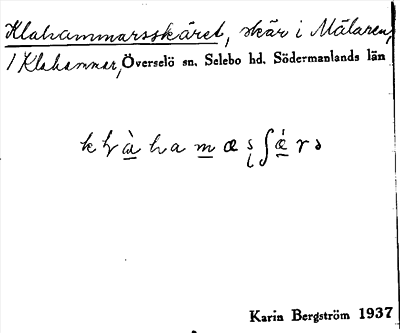 Klahammarsskäret, skär i Mälaren,
/ Klahammar, Överselö sn. Selebo hd. Södermanlands län
Karin Bergström 1937